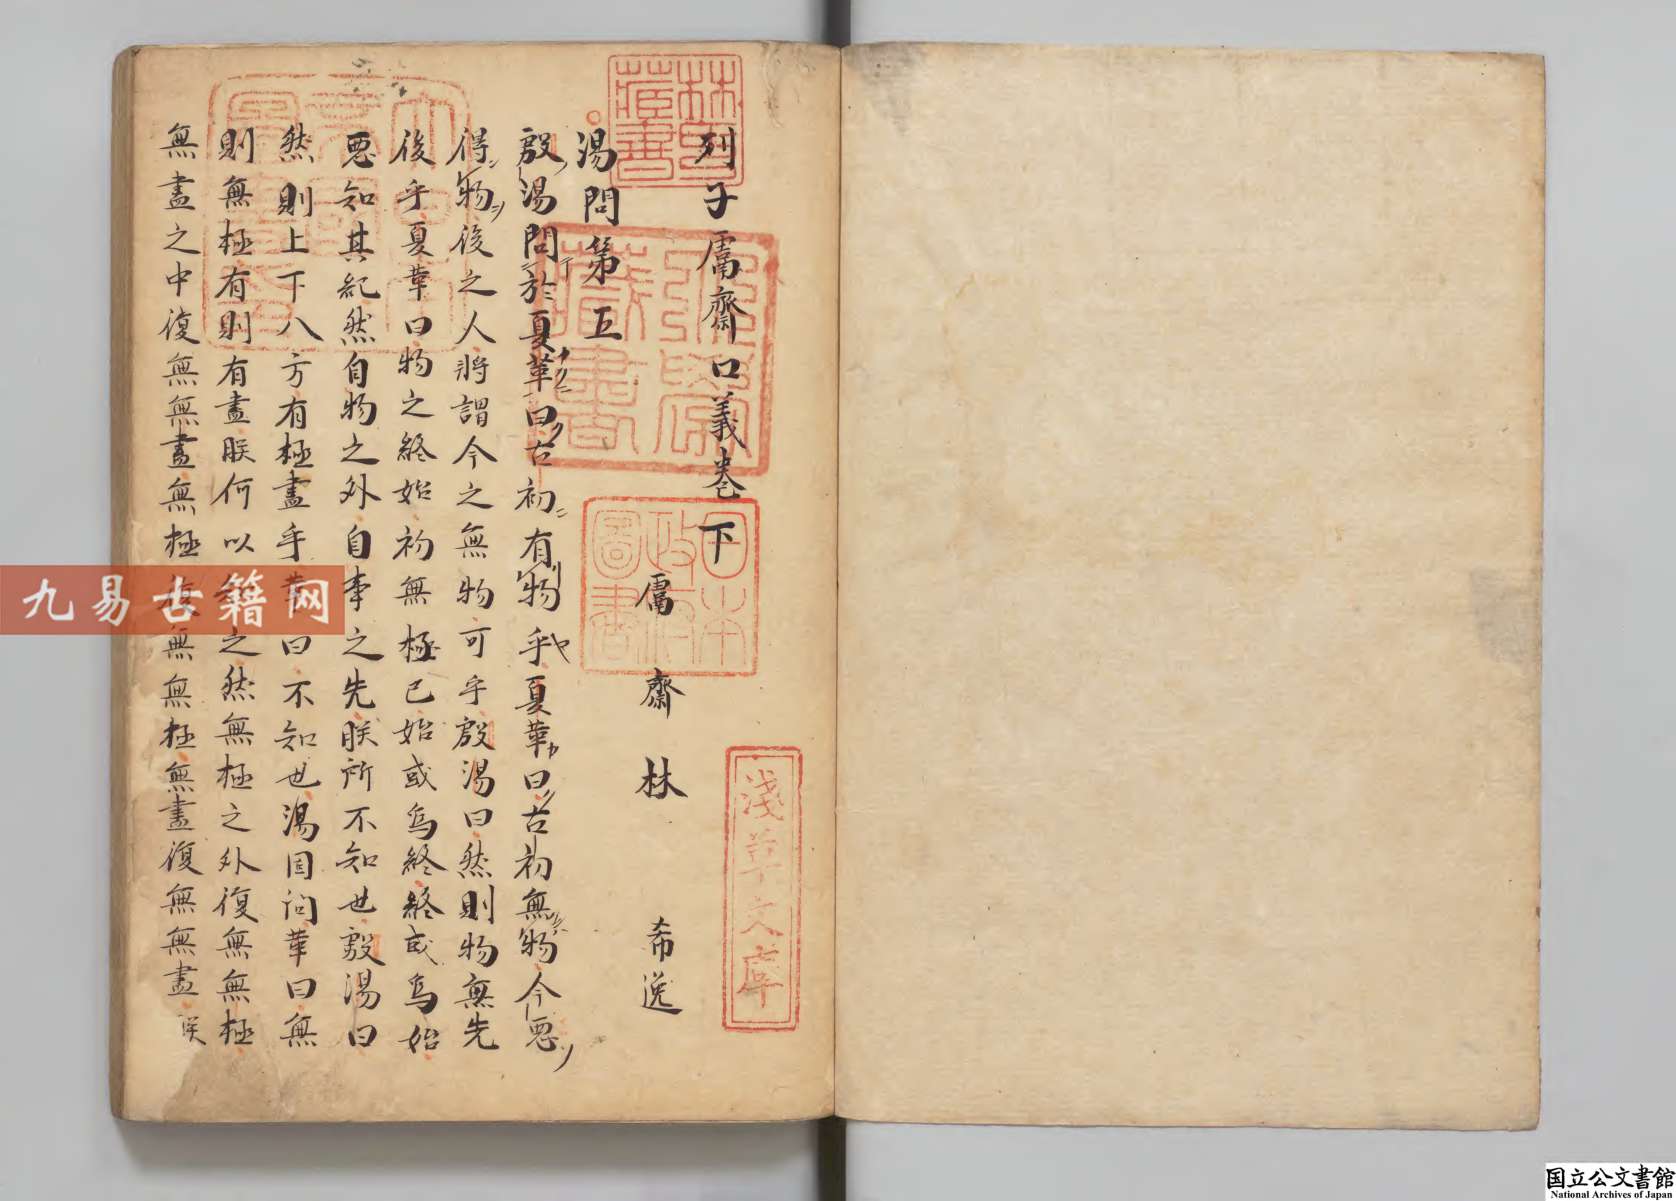 列子鬳齋口義卷下
鬳齋林希逸
湯問第五
殷湯問於夏革曰古初有物乎夏革曰古初無物今惡
得物後之人將謂今之無物可乎殷湯曰然則物無先
後乎夏革曰物之終始初無極已始或爲終終或爲始
惡知其紀然自物之外自事之先朕所不知也殷湯曰
然則上下八方有極盡乎革曰不知也湯固問革曰無
則無極有則有盡朕何以之然無極之外復無無極
無盡之中復無無盡無極無無極無盡復無無盡朕
林氏藏書
淺草文庫
日本政府圖書
九易古籍网
国立公文書館
National Archives of Japan